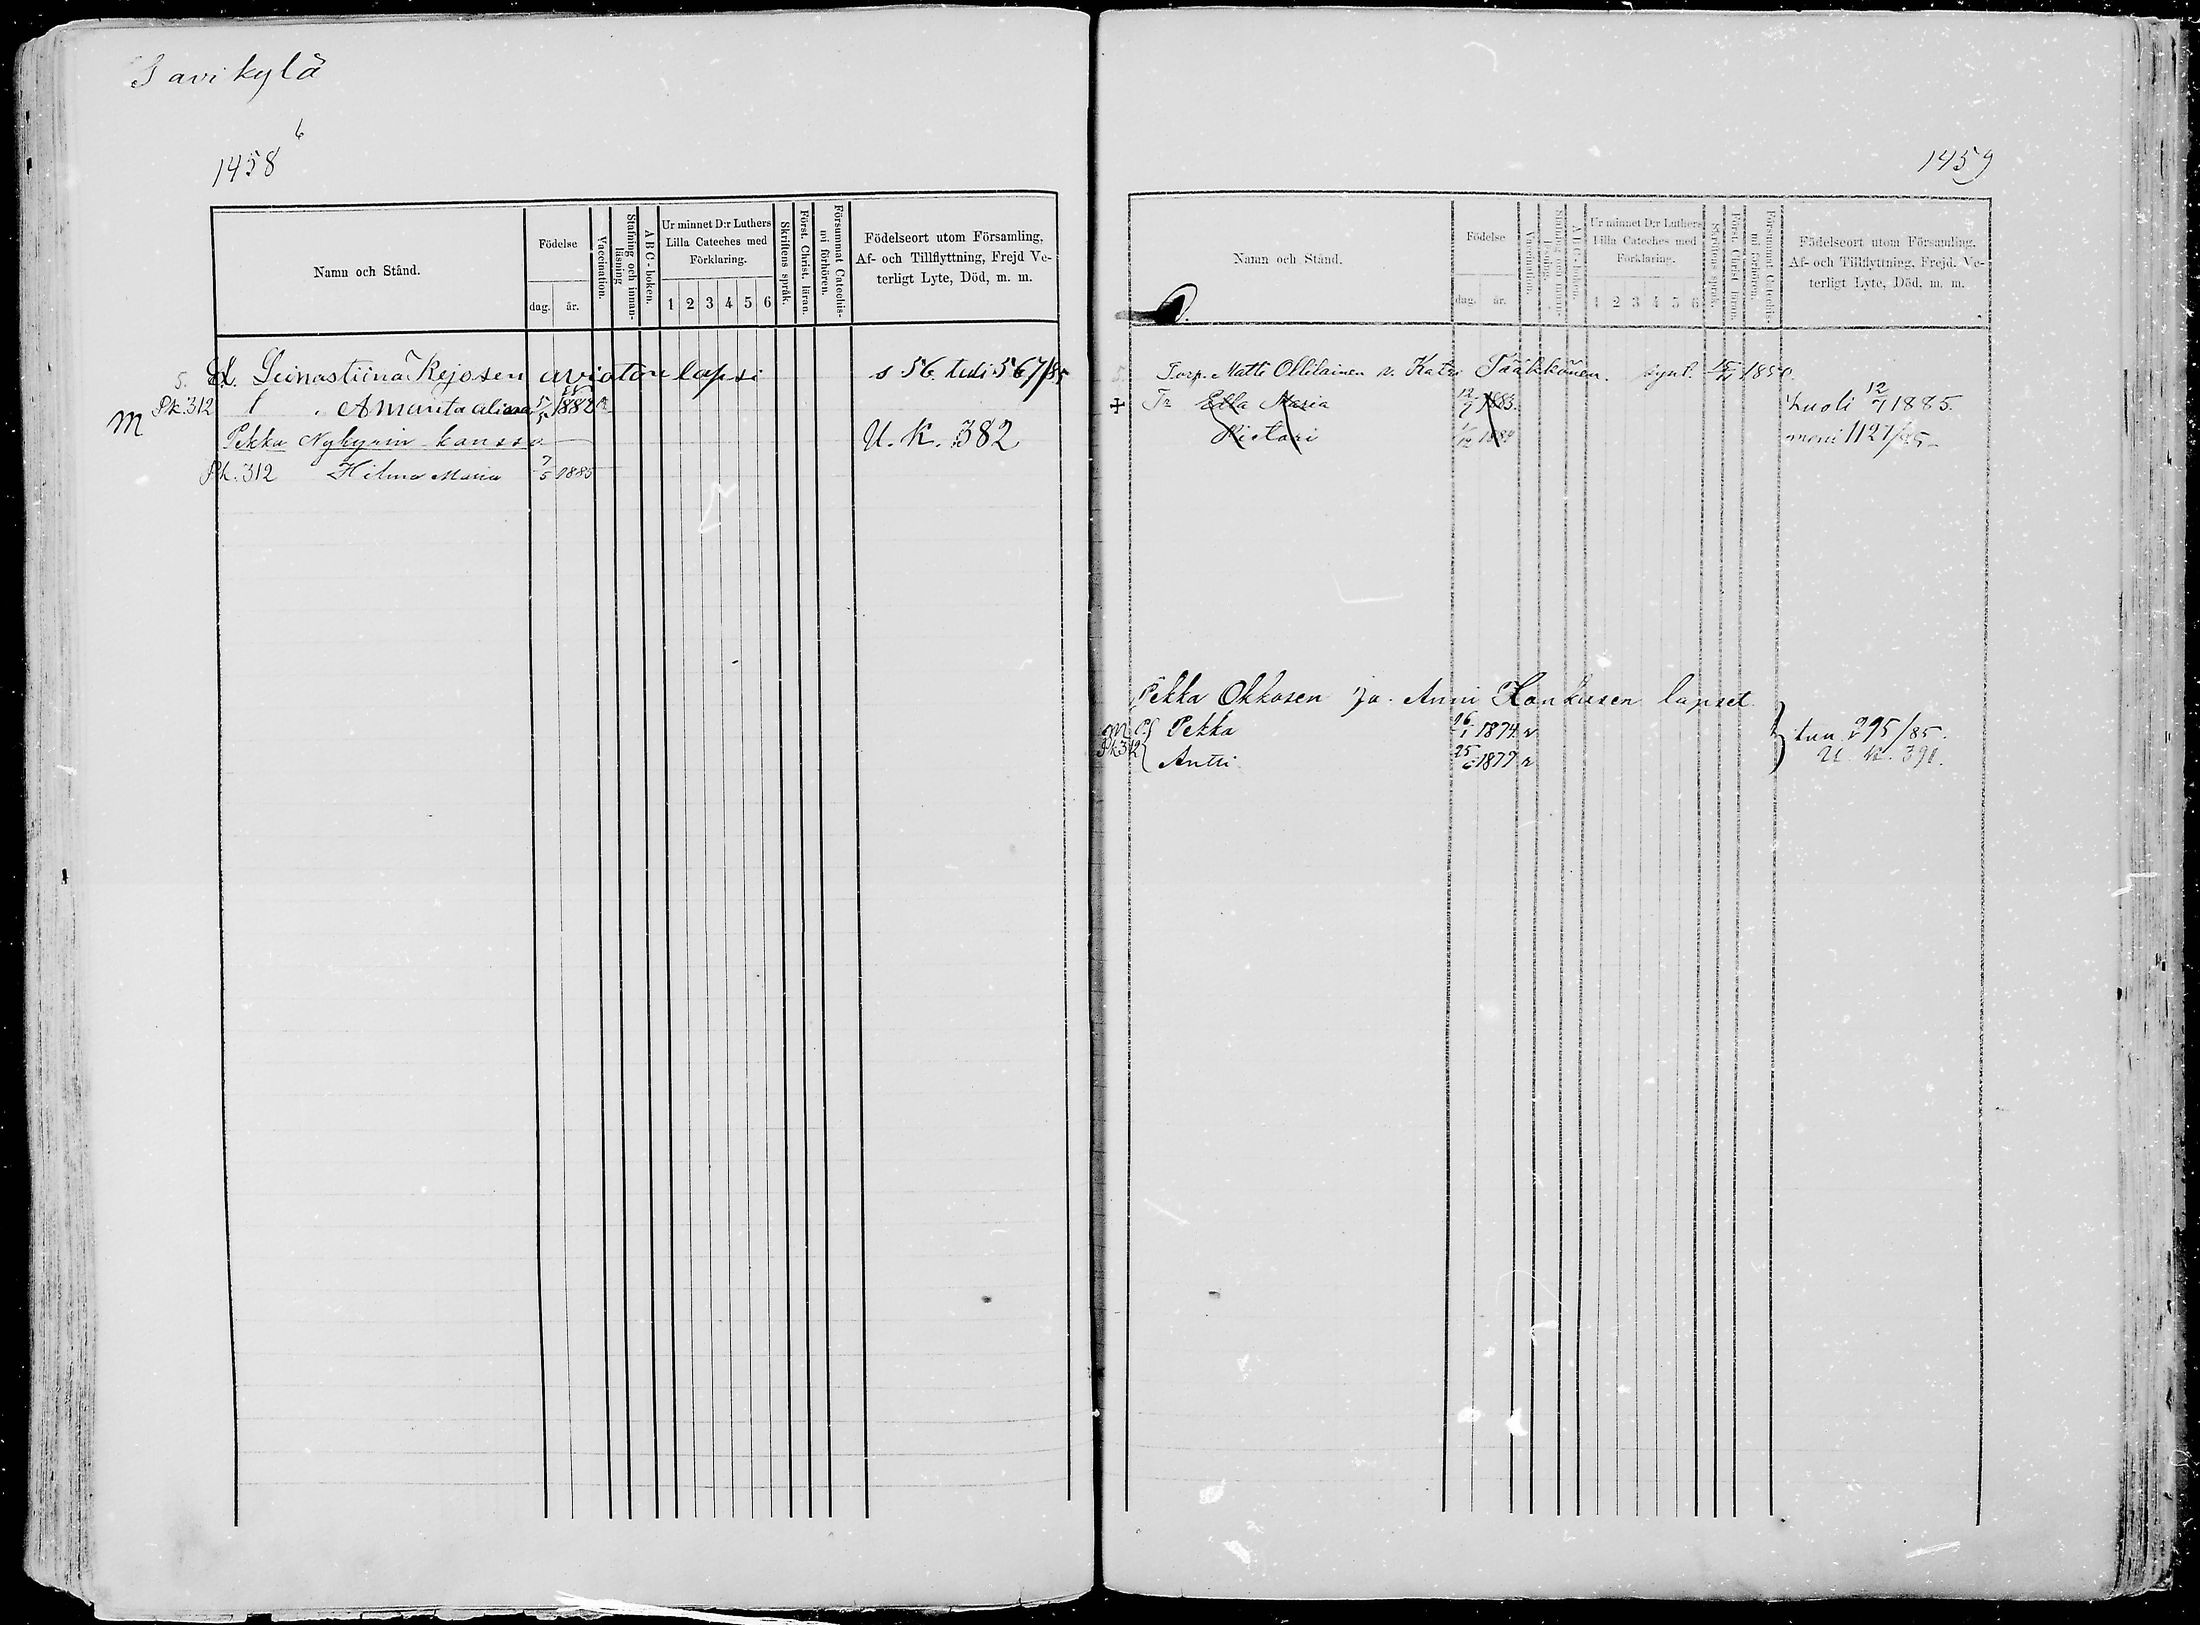 Savikylä
1458
Namn och Stånd.
Födelse
dag.
år.
Vaccination.
Stafning och innan-läsning
A B C - boken.
Ur minnet D:r Luthers Lilla Cateches med Förklaring.
1 2 3 4 5 6
Skriftens språk.
Först. Christ. läran.
Försummat Catechis-mi förhören.
Födelseort utom Församling, Af- och Tillflyttning, Frejd Ve-terligt Lyte, Död, m. m.
5. Stiina Kejosen aviotoin lapsi s 56. tuli 567/85
Pk. 312 Amanta aliina 1882
M
Pekka Nykyrin kanssa U. K. 382
Pk. 312 Hilma Maria 7/5 1885
1459
Namn och Stånd.
Födelse
dag.
år.
Vaccination.
Ur minnet D:r Luthers Lilla Cateches med Förklaring.
1 2 3 4 5 6
Skriftens språk.
Först. Christ läran.
Försummat Catechis-mi förhören.
Födelseort utom Församling, Af- och Tillflyttning, Frejd, Ve-terligt Lyte, Död, m. m.
Torp. Matti Ollilainen v. Katri Pääkkönen. synt. 1850.
Tr Ella Maria 12/7 1883. kuoli 12/7 1885.
Kistari 1884 meni 1127/85
Pekka Okkosen ja Anni Hankusen lapset
M P. Pekka 26/1 1874 v tuu 295/85.
Pk 312 Antti 25/6 1879 v U. K. 390.